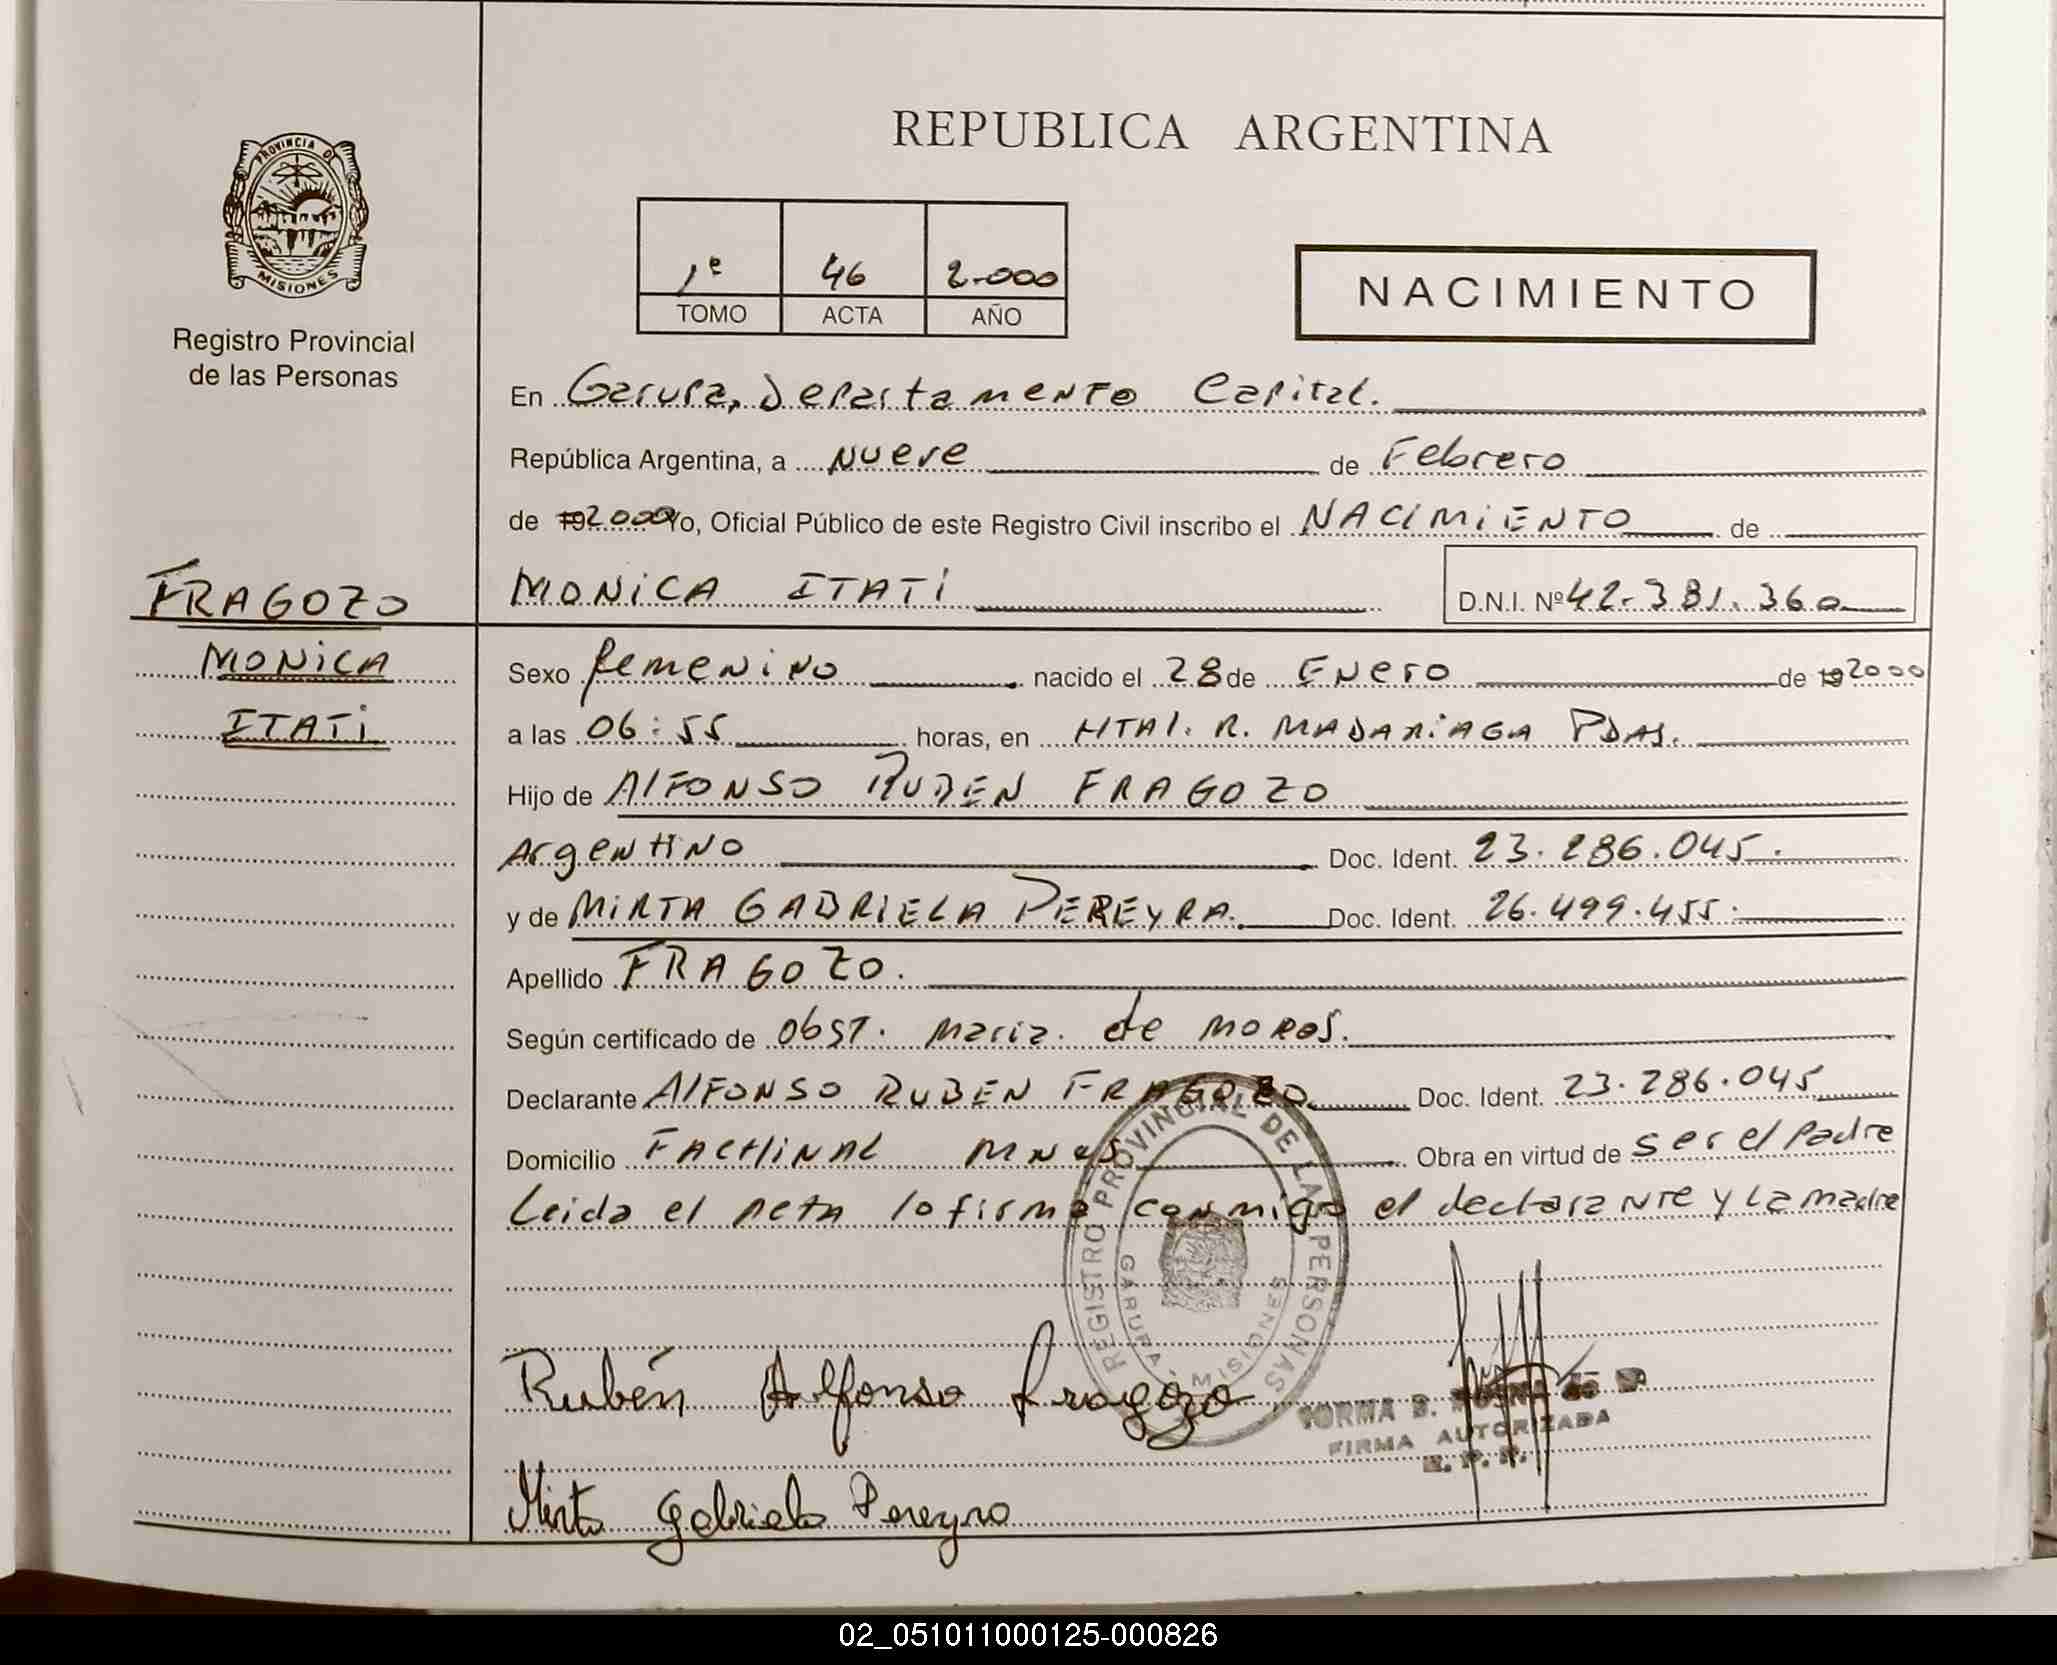 REPUBLICA ARGENTINA
PROVINCIA DE
MISIONES
Registro Provincial
de las Personas
1º 46 2.000
TOMO ACTA AÑO
NACIMIENTO
En Garupa, Departamento Capital.
República Argentina, a Nueve de Febrero
de 192000 Yo, Oficial Público de este Registro Civil inscribo el NACIMIENTO de
FRAGOZO
MONICA
ITATI
MONICA ITATI D.N.I. Nº 42.381.360
Sexo femenino nacido el 28 de Enero de 192000
a las 06:55 horas, en HTAl. R. MADARIAGA PDAS.
Hijo de AlFONSO RUBEN FRAGOZO
Argentino Doc. Ident. 23.286.045.
y de MIRTA GABRIELA PEREYRA. Doc. Ident. 26.499.455.
Apellido FRAGOZO.
Según certificado de obST. Maria. de MOROS.
Declarante AlFONSO RUBEN FRAGOZO. Doc. Ident. 23.286.045
Domicilio FACHINAL MNES Obra en virtud de ser el Padre
Leida el acta lo firma conmigo el declarante y la madre
REGISTRO PROVINCIAL DE LAS PERSONAS
GARUPA - MISIONES
Rubén Alfonso Fragozo
NORMA B.
FIRMA AUTORIZADA
R. P. P.
Mirta Gabriela Pereyra
02_051011000125-000826